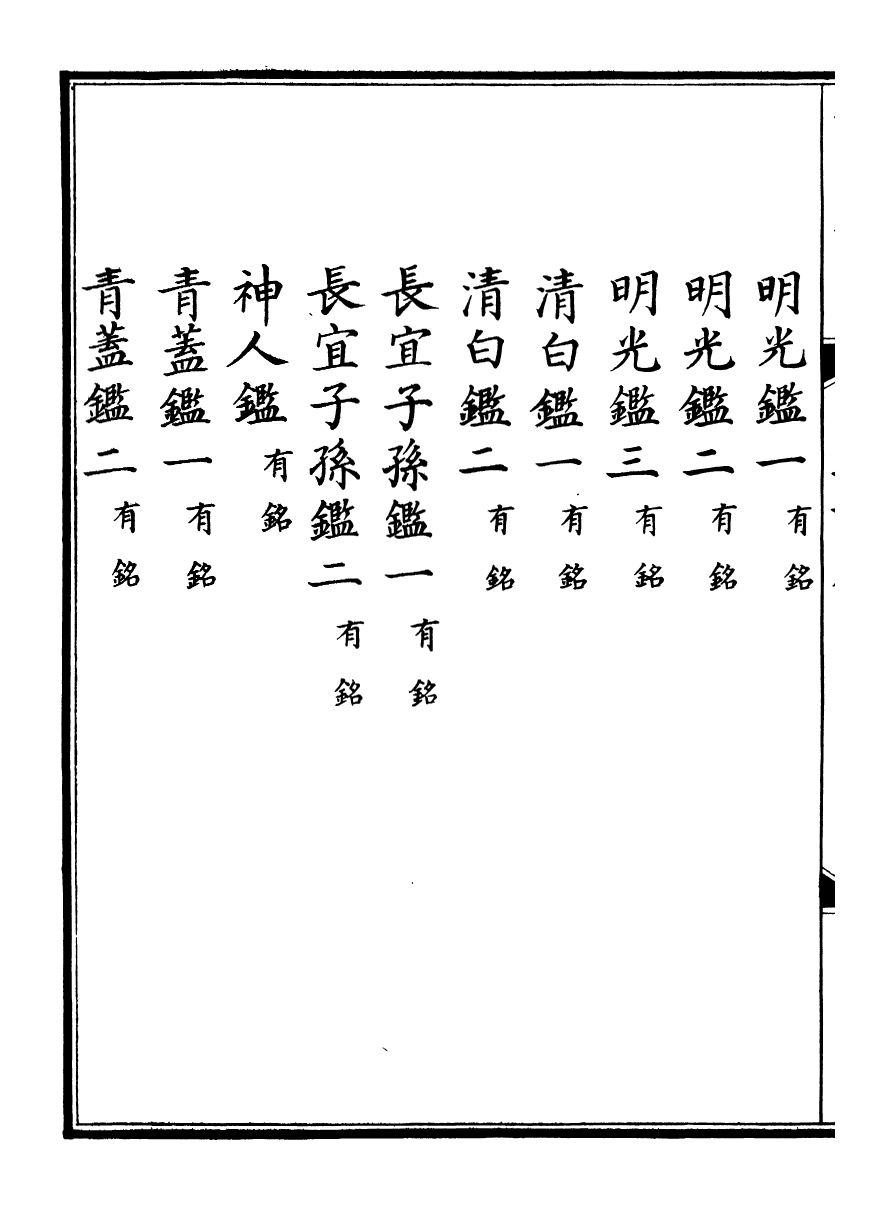 明光鑑一有銘
明光鑑二有銘
明光鑑三有銘
清白鑑一有銘
清白鑑二有銘
長宜子孫鑑一有銘
長宜子孫鑑二有銘
神人鑑有銘
青蓋鑑一有銘
青蓋鑑二有銘